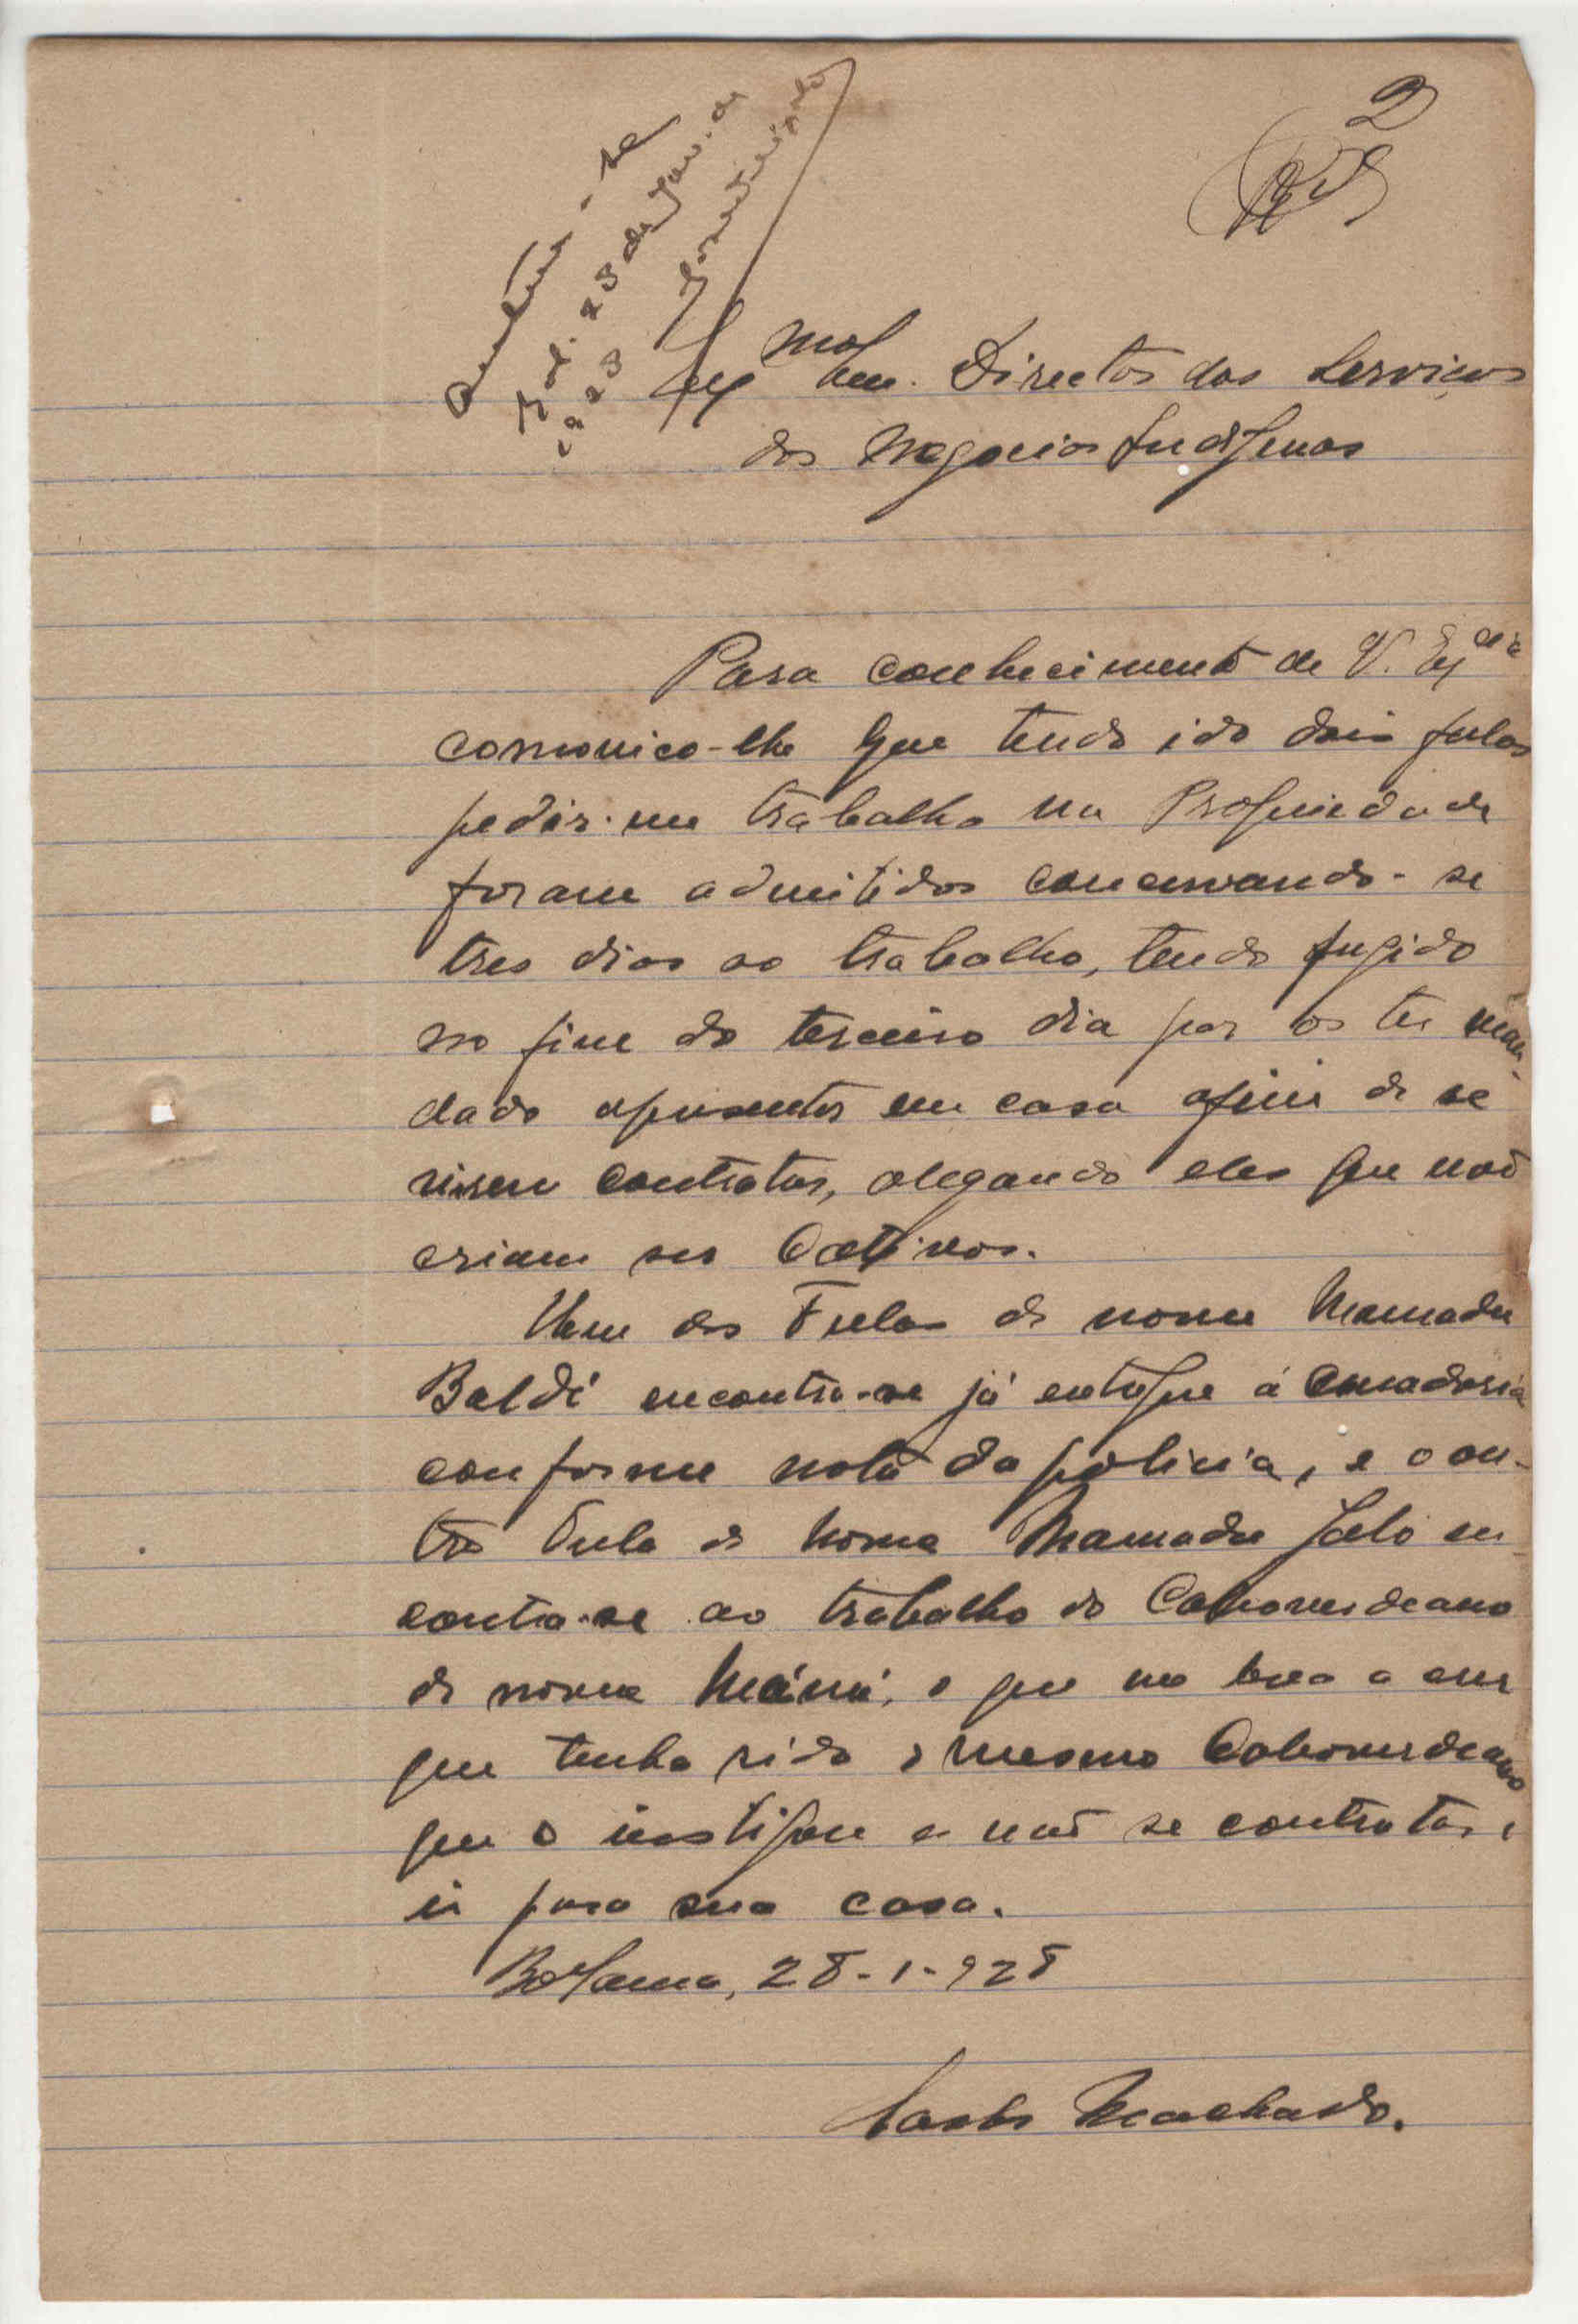 2
Autue-se
Bol. 28 de Jan. de
1928
Exmo Snr. Director dos Serviços
dos Negocios Indigenas
Para conhecimento de V. Excia
comonico-lhe que tendo ido dois fulas
pedir-me trabalho na Propriedade
foram admitidos concervando-se
tres dias ao trabalho, tendo fugido
no fim do terceiro dia por os ter man-
dado apresentar em casa afim de se
rirem contratar, alegando eles que não
criam ser Cativos.
Um dos Fulas de nome Mamadu
Baldé encontra-se já entregue á Curadoria
conforme nota da policia, e o ou-
tro Fula de nome Mamadu Jaló en-
contra-se ao trabalho do Caboverdeano
de nome o que me leva a crer
que tenha sido o mesmo Caboverdeano
que o instigou a não se contratar e
ir para sua casa.
Bolama, 28-1-928
Machado.